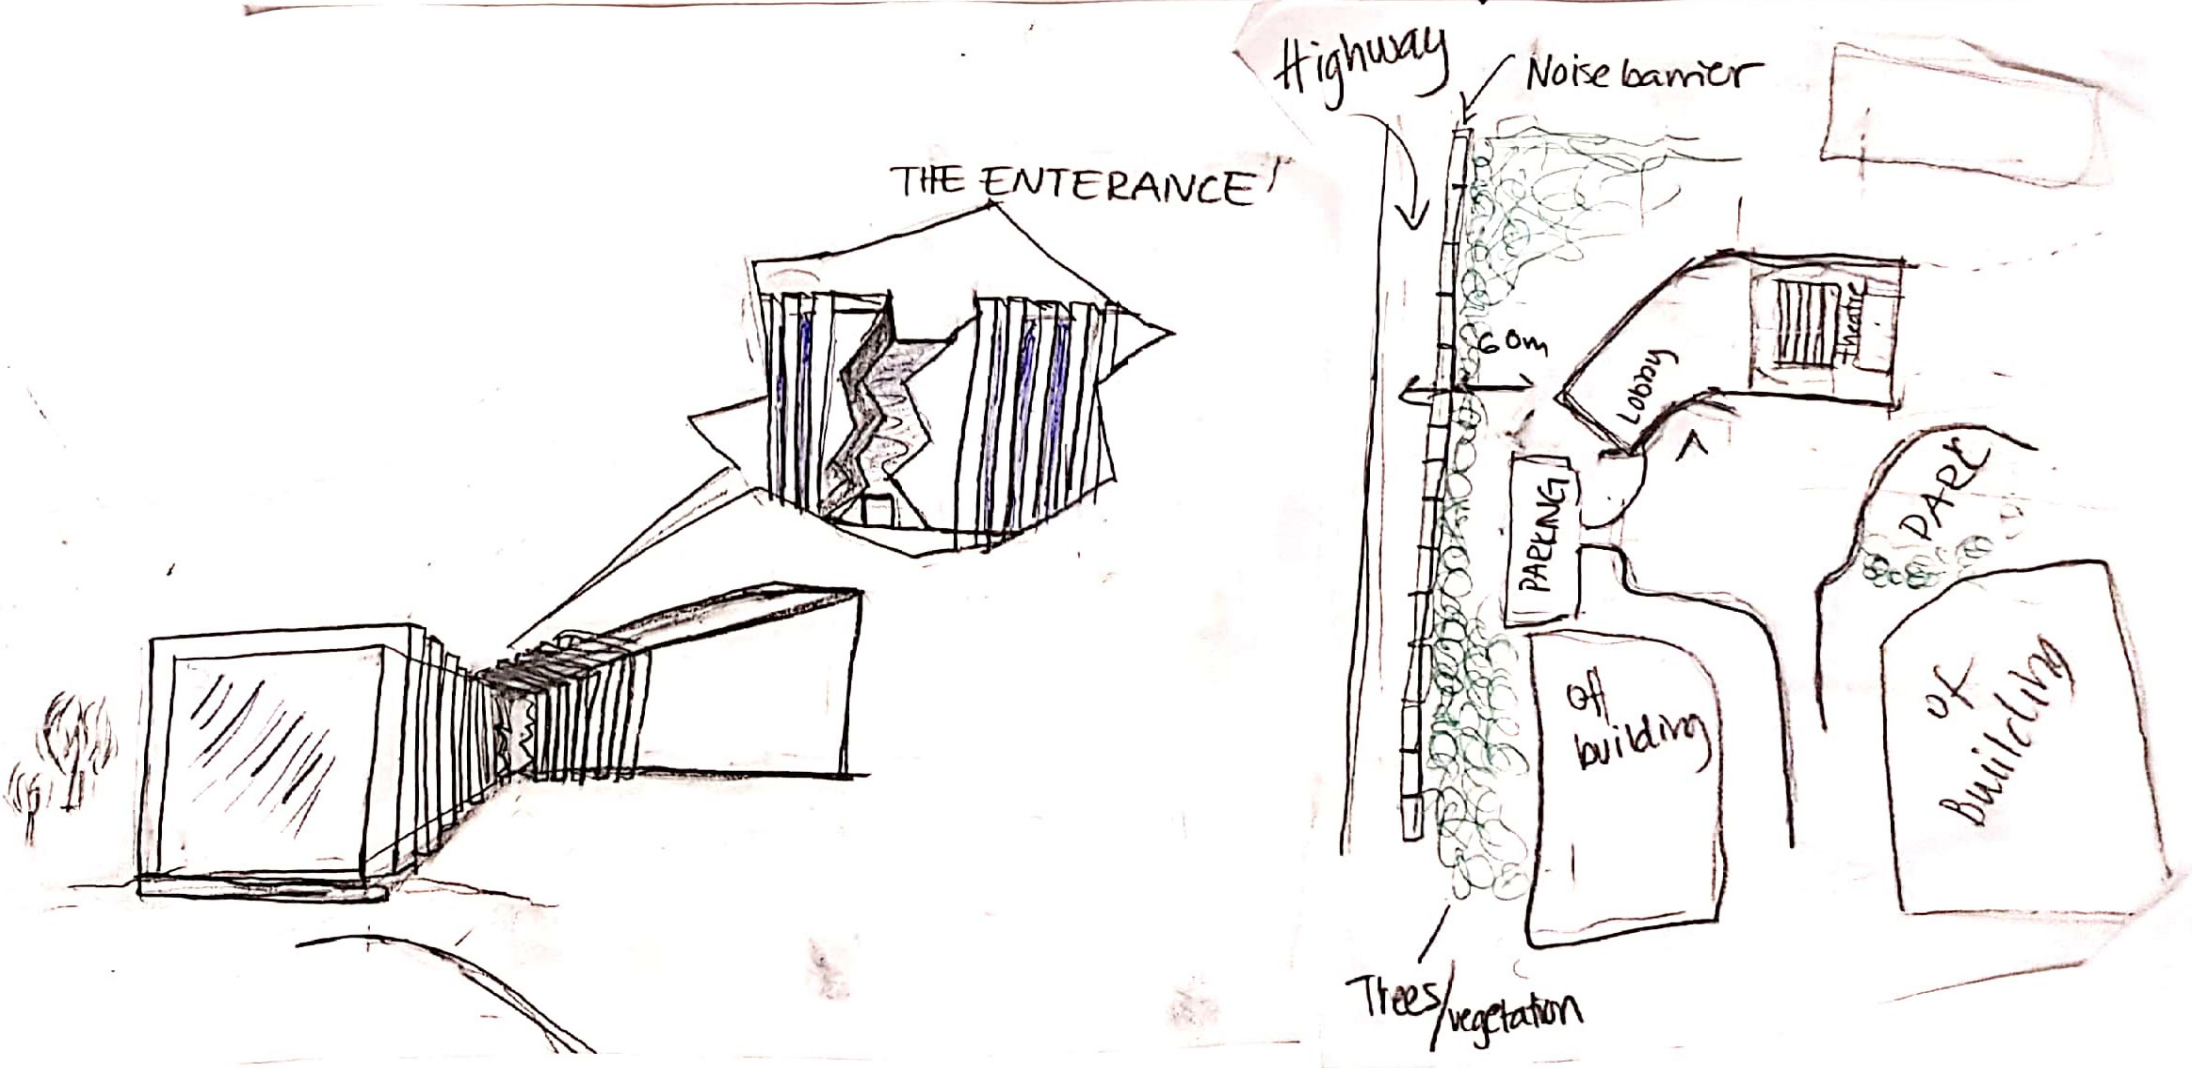 THE ENTERANCE'
Highway
Noise barrier
60m
Lobby
theatre
PARKING
PARK
Off
building
of
Building
Trees/
vegetation